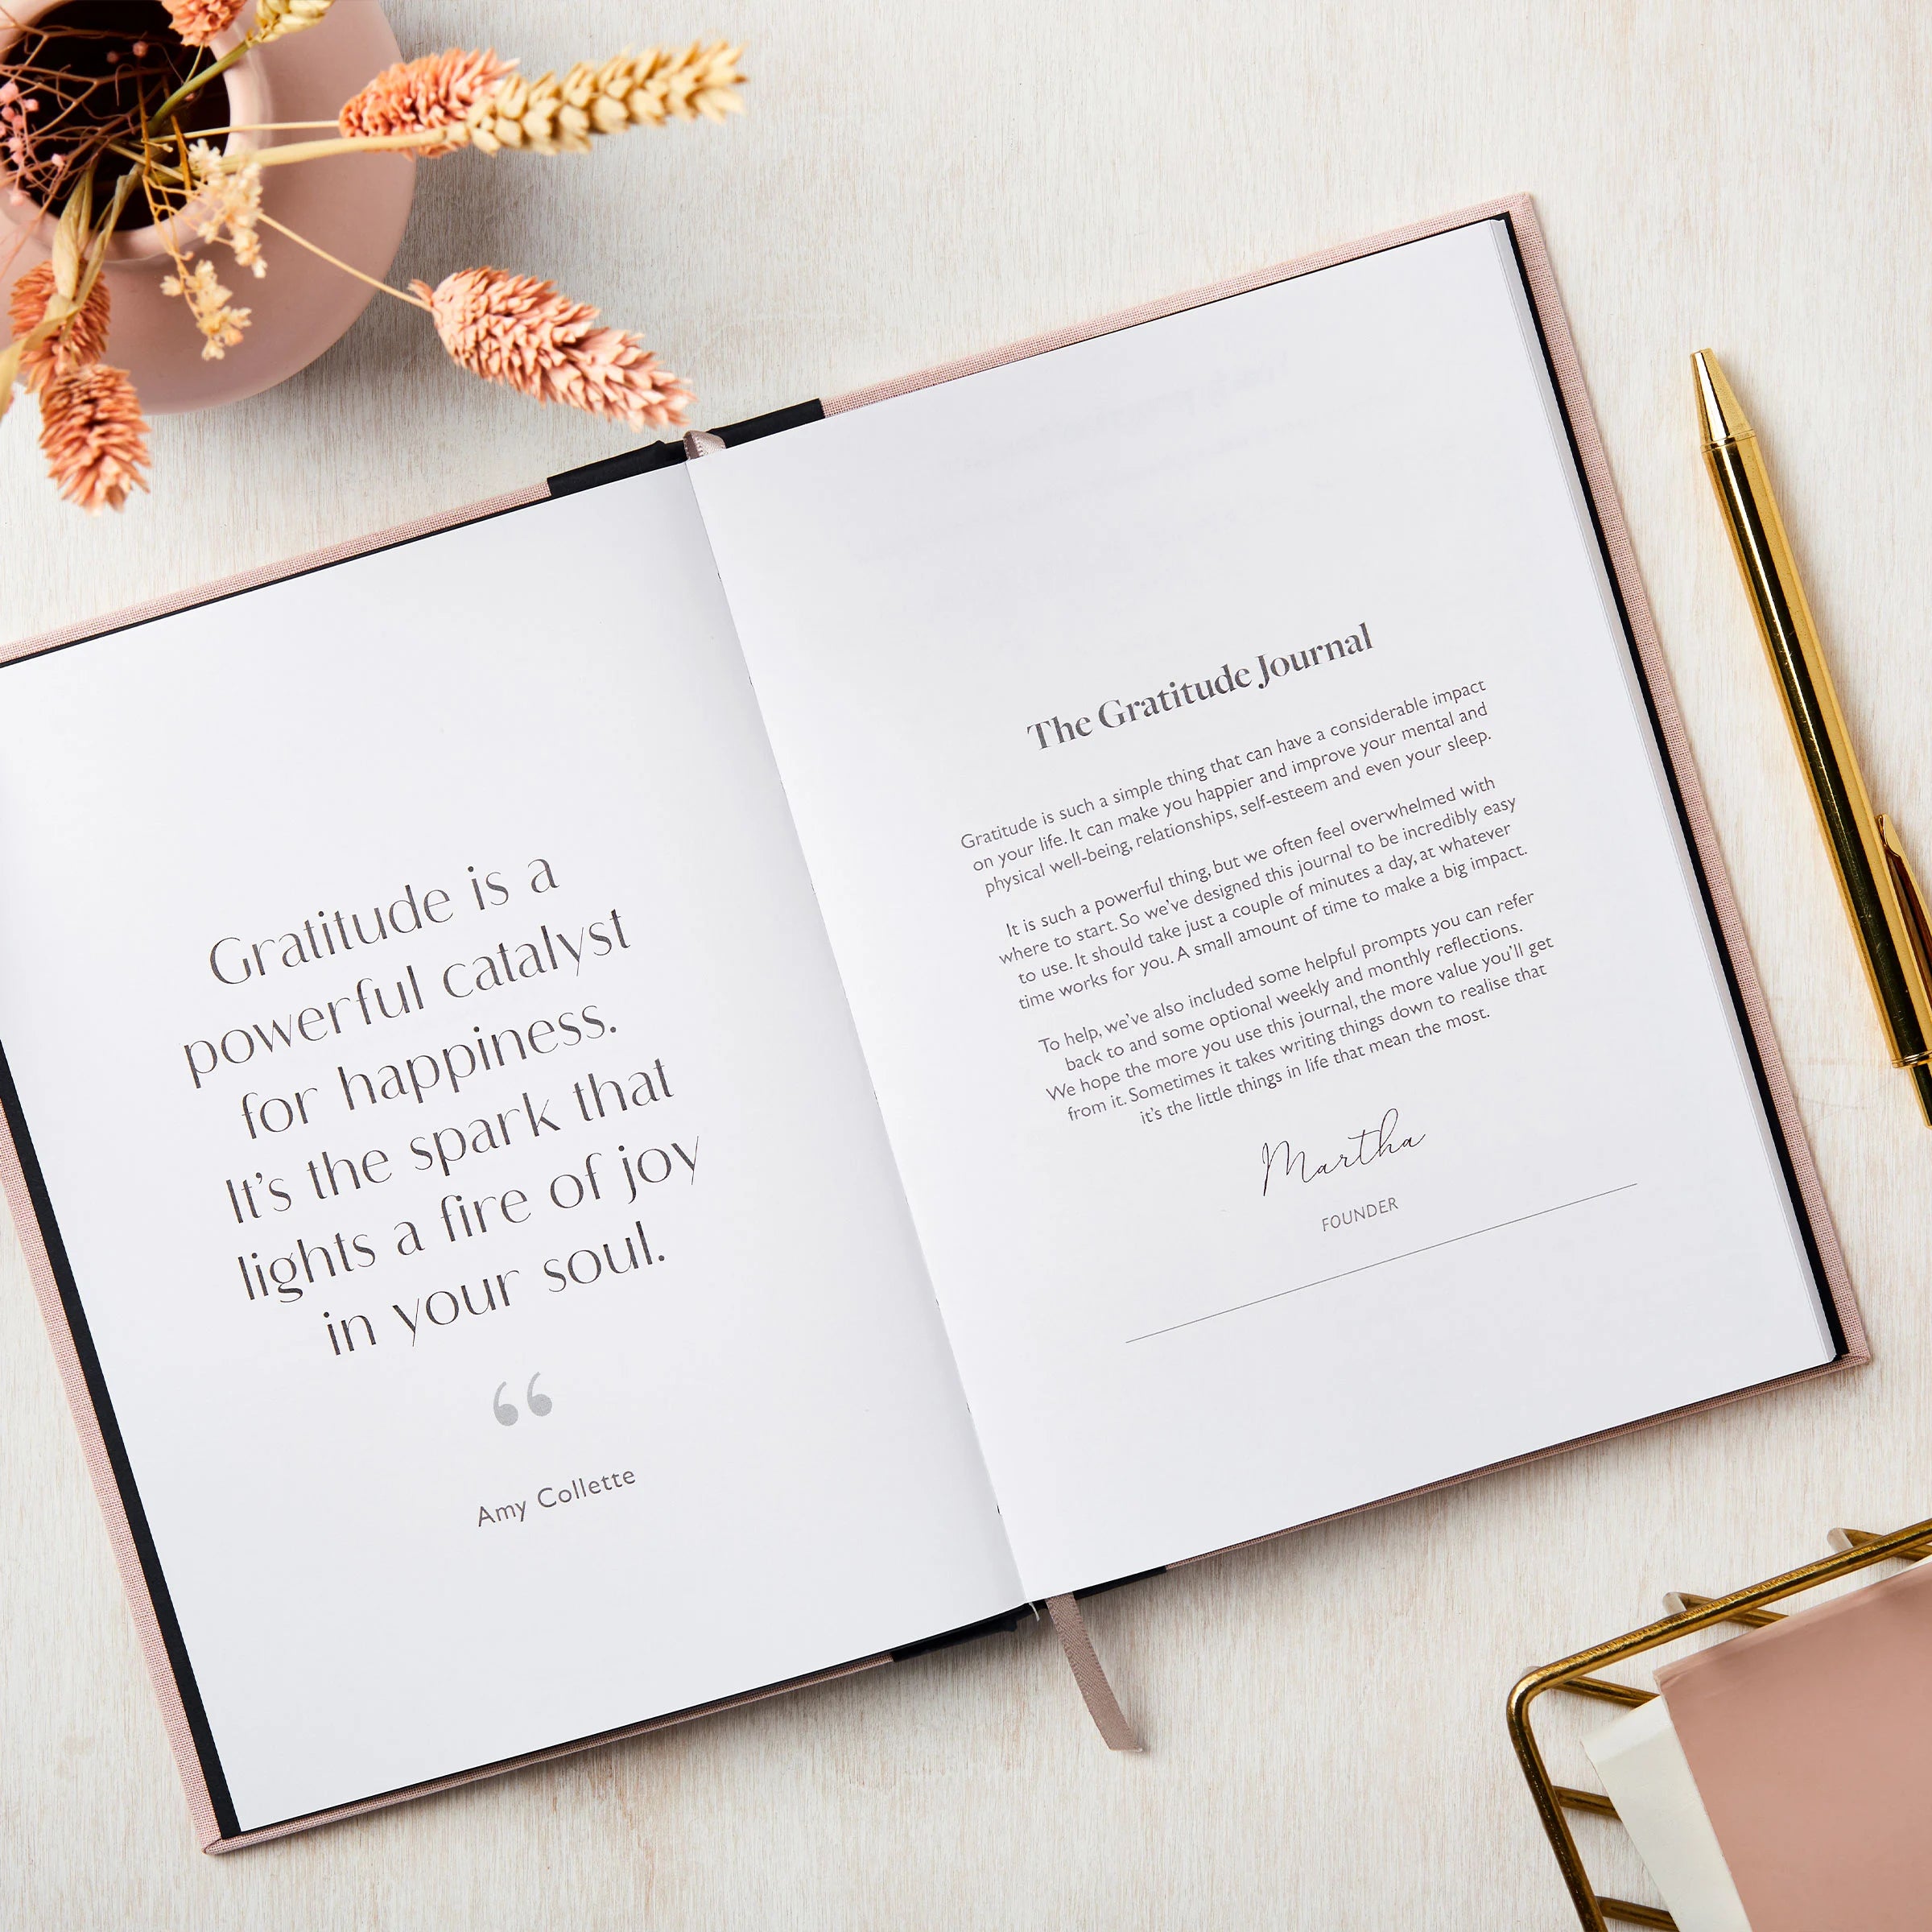 Gratitude is a
powerful catalyst
for happiness.
It's the spark that
lights a fire of joy
in your soul.
“
Amy Collette
The Gratitude Journal
Gratitude is such a simple thing that can have a considerable impact
on your life. It can make you happier and improve your mental and
physical well-being, relationships, self-esteem and even your sleep.
It is such a powerful thing, but we often feel overwhelmed with
where to start. So we've designed this journal to be incredibly easy
to use. It should take just a couple of minutes a day, at whatever
time works for you. A small amount of time to make a big impact.
To help, we've also included some helpful prompts you can refer
back to and some optional weekly and monthly reflections.
We hope the more you use this journal, the more value you'll get
from it. Sometimes it takes writing things down to realise that
it's the little things in life that mean the most.
Martha
FOUNDER